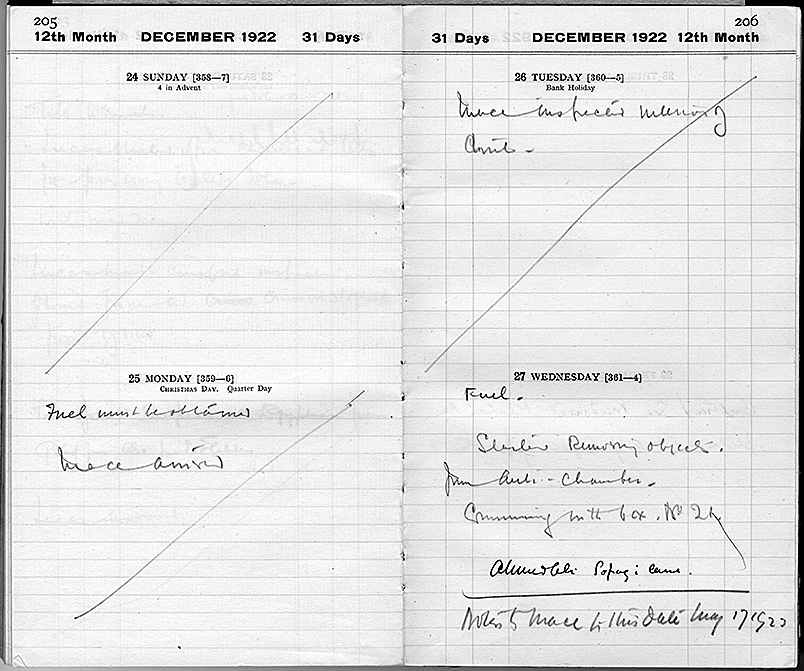 205
12th Month DECEMBER 1922 31 Days
24 SUNDAY [358—7]
4 in Advent
25 MONDAY [359—6]
CHRISTMAS DAY. Quarter Day
Fuel must be obtained
Mace arrived
206
31 Days DECEMBER 1922 12th Month
26 TUESDAY [360—5]
Bank Holiday
Mace inspected
27 WEDNESDAY [361—4]
Fuel.
Started Removing objects.
from Anti-Chamber.
Commencing with box. No 21
Ahmed
Notes to Mace to this date May 17 1923